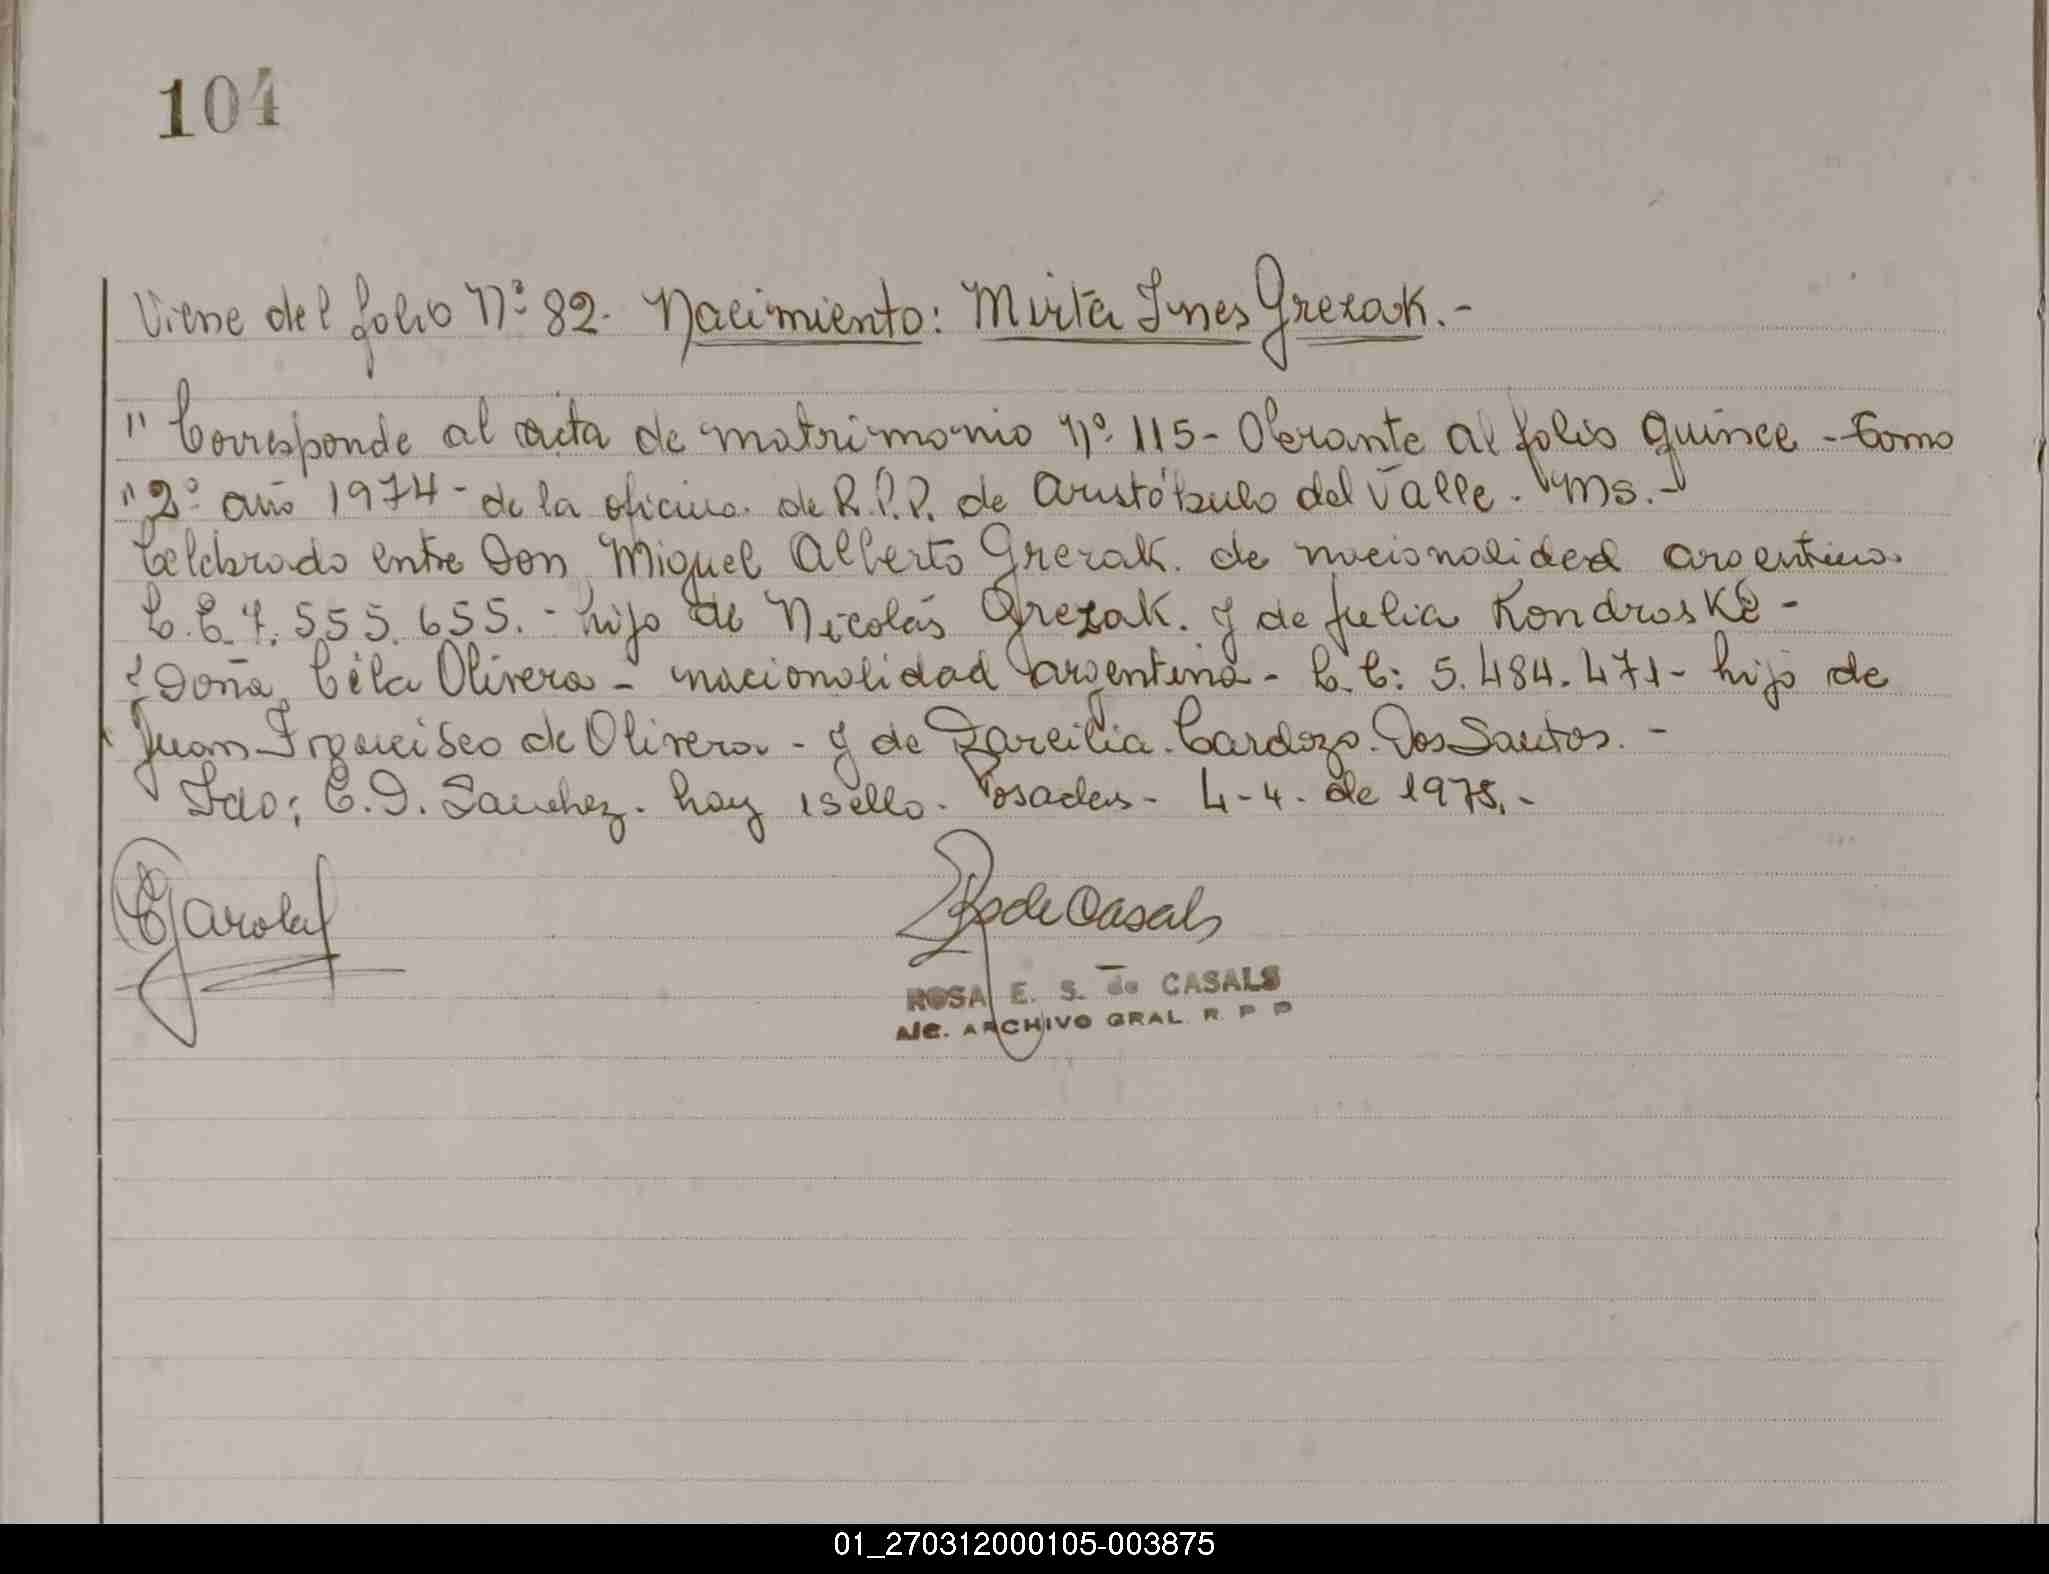 104
Viene del folio Nº 82. Nacimiento: Mirta Ines Grezak.-
"Corresponde al acta de matrimonio Nº 115- Obrante al folio quince - Tomo
"2º año 1974- de la oficina de R.P.P. de Aristóbulo del Valle. Ms.-
Celebrado entre Don Miguel Alberto Grezak. de nacionalidad argentino.
7.555.655.- hijo de Nicolás Grezak. y de Julia Kondroski-
Doña Célia Olivera - nacionalidad argentina - 5.484.471- hija de
Juan Francisco de Olivera - y de Cardozo Dos Santos.-
Fdo: E.D. Sanchez. hay 1 sello. Posadas - 4-4. de 1975.-
de Casals
ROSA E. S. de CASALS
A/c. ARCHIVO GRAL. R P P
01_270312000105-003875